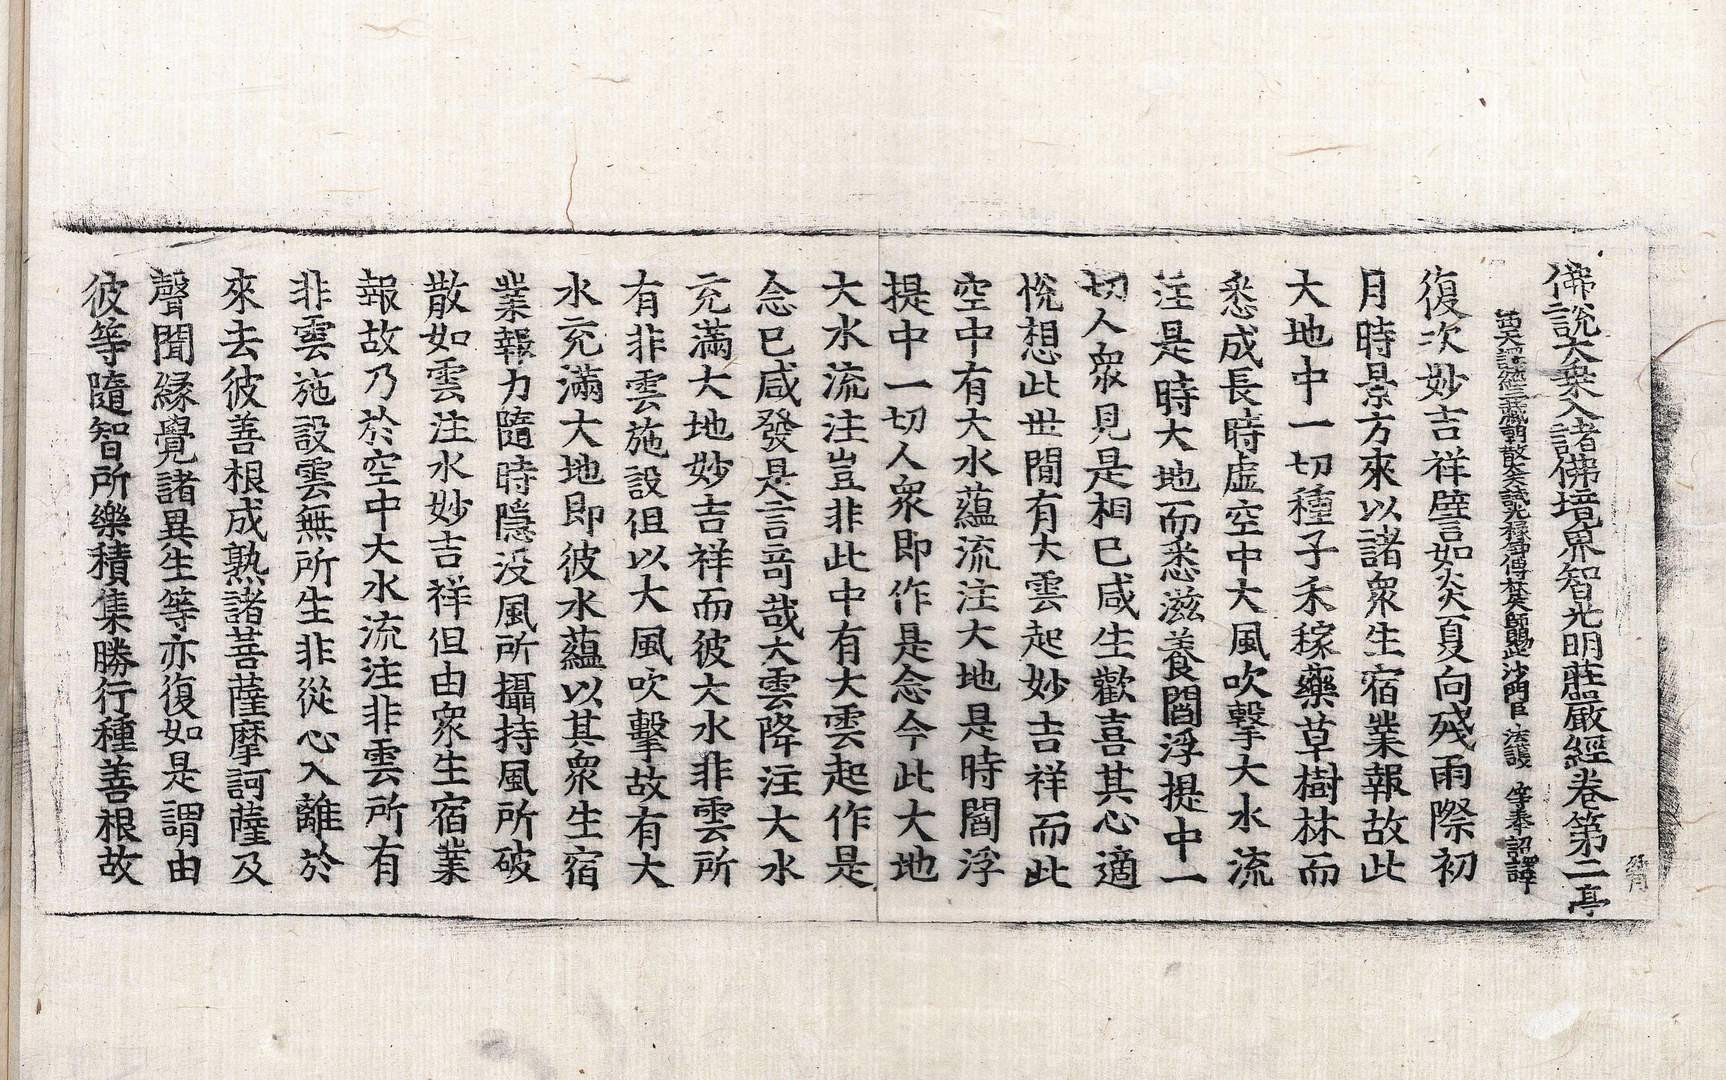 佛說大乘入諸佛境界智光明莊嚴經卷第二 亭
西天譯經三藏朝散大夫試光祿卿傳梵大師賜紫沙門臣法護等奉詔譯
復次妙吉祥譬如炎夏向殘雨際初
月時景方來以諸衆生宿業報故此
大地中一切種子禾稼藥草樹林而
悉成長時虛空中大風吹擊大水流
注是時大地而悉滋養閻浮提中一
切人衆見是相已咸生歡喜其心適
悅想此世間有大雲起妙吉祥而此
空中有大水蘊流注大地是時閻浮
提中一切人衆即作是念今此大地
大水流注豈非此中有大雲起作是
念已咸發是言奇哉大雲降注大水
充滿大地妙吉祥而彼大水非雲所
有非雲施設但以大風吹擊故有大
水充滿大地即彼水蘊以其衆生宿
業報力隨時隱没風所攝持風所破
散如雲注水妙吉祥但由衆生宿業
報故乃於空中大水流注非雲所有
非雲施設雲無所生非從心入離於
來去彼善根成熟諸菩薩摩訶薩及
聲聞緣覺諸異生等亦復如是謂由
彼等隨智所樂積集勝行種善根故